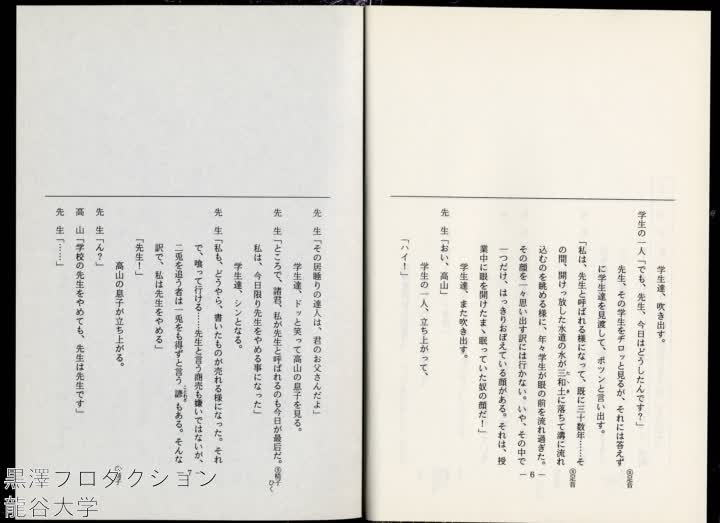 学生達、吹き出す。
学生の一人「でも、先生、今日はどうしたんです？」
先生、その学生をヂロッと見るが、それには答えず
に学生達を見渡して、ポツンと言い出す。
「私は、先生と呼ばれる様になって、既に三十数年……そ
の間、開けっ放した水道の水が三和土に落ちて溝に流れ
込むのを眺める様に、年々学生が眼の前を流れ過ぎた。
その顔を一々思い出す訳には行かない。いや、その中で
一つだけ、はっきりおぼえている顔がある。それは、授
業中に眼を開けたまゝ眠っていた奴の顔だ！」
学生達、また吹き出す。
先　生「おい、高山」
学生の一人、立ち上がって、
「ハイ！」
― 6 ―
先　生「その居睡りの達人は、君のお父さんだよ」
学生達、ドッと笑って高山の息子を見る。
先　生「ところで、諸君、私が先生と呼ばれるのも今日が最后だ。
私は、今日限り先生をやめる事になった」
学生達、シンとなる。
先　生「私も、どうやら、書いたものが売れる様になった。それ
で、喰って行ける……先生と言う商売も嫌いではないが、
二兎を追う者は一兎をも得ずと言う諺もある。そんな
訳で、私は先生をやめる」
「先生！」
高山の息子が立ち上がる。
先　生「ん？」
高　山「学校の先生をやめても、先生は先生です」
先　生「……」
7 ―
黒澤プロダクション
龍谷大学